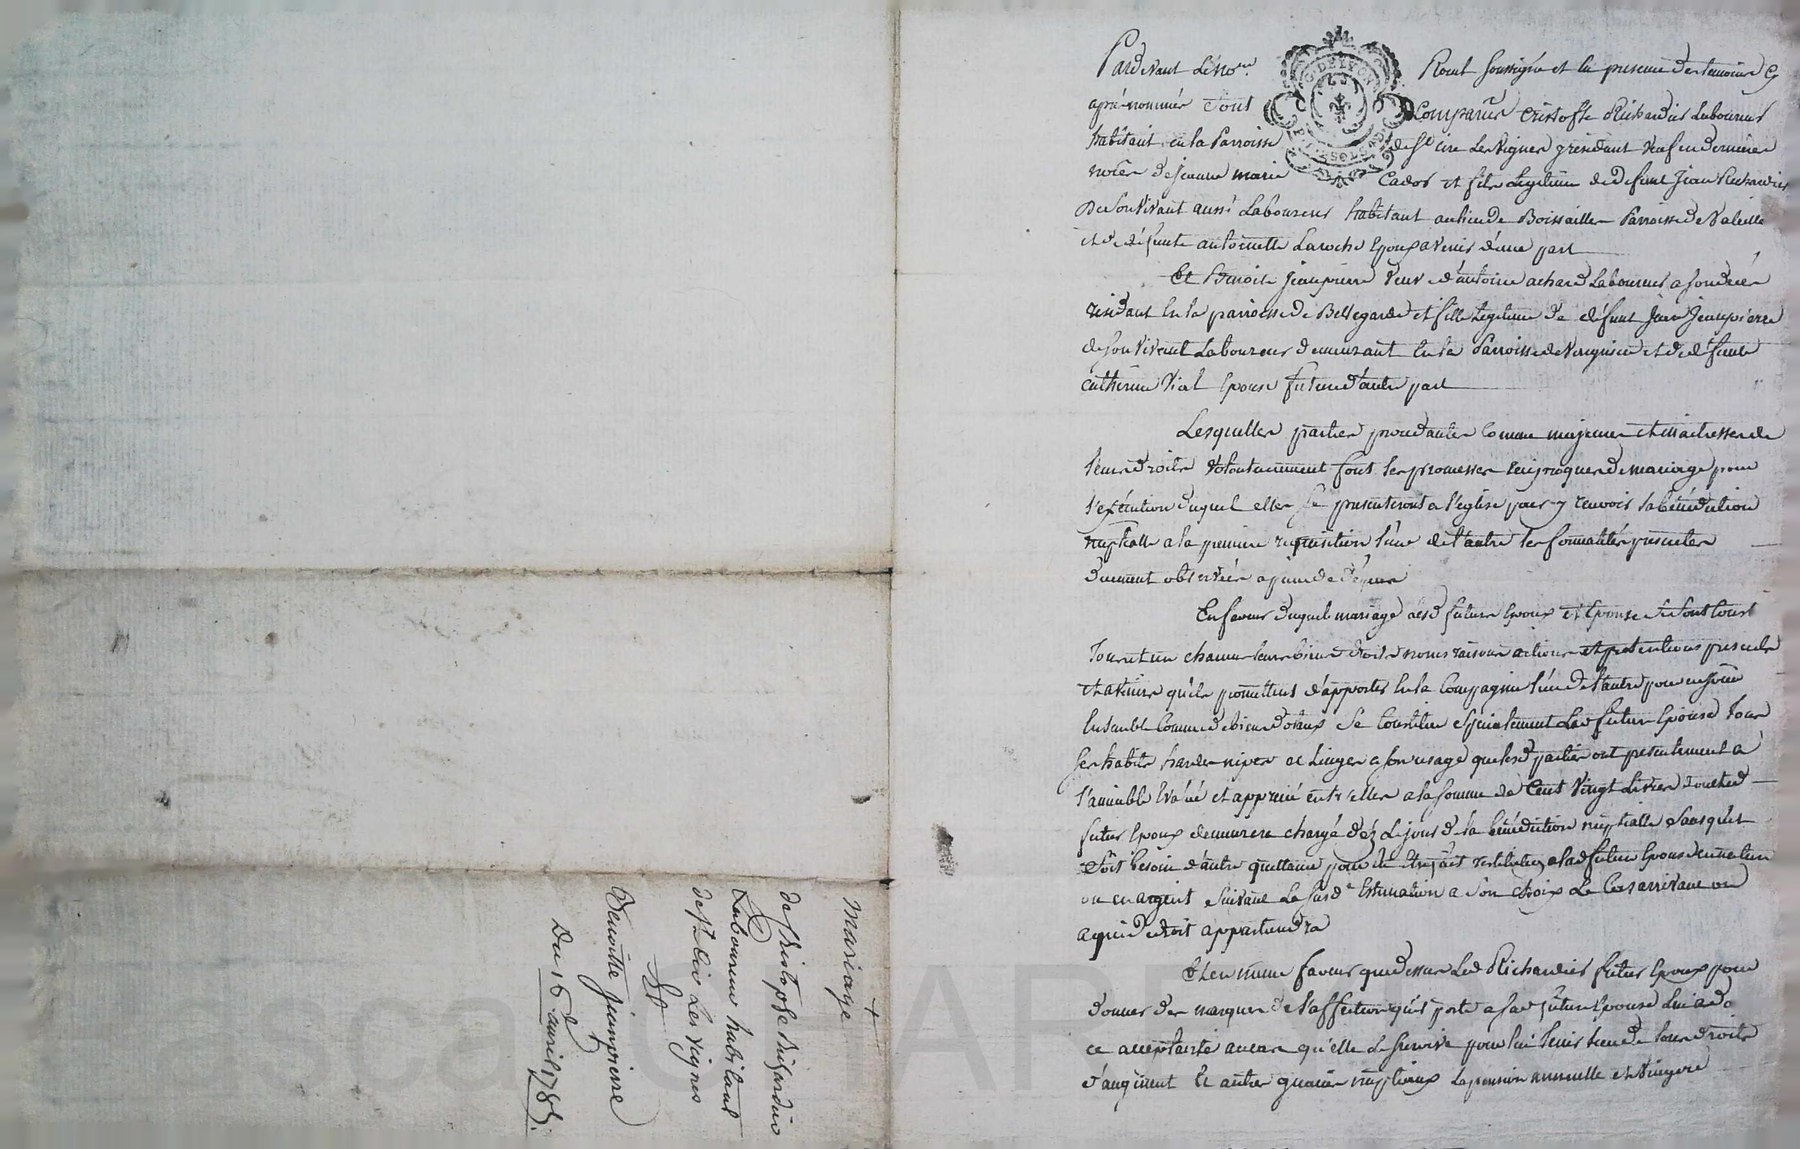 Pardevant le no.re Royal soussigné et en presence des temoins cy
apres nommés sont Comparus Cristofle Richardier Laboureur
habitant en la Parroisse de St cire Les Vignes present veuf en derniere
noces de jeanne marie Cador et fils Legitime de defunt Jean Richardier
de son vivant aussi Laboureur habitant au lieu de Boissailles Parroisse de Valeille
et de défunte antoinette Laroche Epoux avenir d'une part
Et Benoite Jeanpierre Veuve d'antoine achard Laboureur a son décés
residant en la parroisse de Bellegarde et fille Legitime de défunt Jean Jeanpierre
de son vivent Laboureur demeurant en la Parroisse de et de défunte
catherine Vial Epouse future d'autre part
Lesquelles parties procedantes comme majeures et maitresses de
leurs droits volontairement font les promesses reciproques de mariage pour
l'exécution duquel elles se presenteront a l'église pour y recevoir la bénédiction
nuptialle a la premiere requisition l'une de l'autre les formalités prescrites
duement observées a peine de d'épens
En faveur duquel mariage lesd futurs Epoux et Epouse se sont constitués
tous et un chacun leurs biens droits noms raisons actions et pretentions presents
et avenir qu'ils promettent d'apporter en la Compagnie l'un de l'autre pour en jouir
Ensemble comme de biens dotaux Se Constitue specialement Lad future Epouse tous
ses habits hardes nipes et Linges a son usage que lesd parties ont presentement a
l'amiable Evalué et apprecié entr'elles a la somme de Cent Vingt Livres dont led
futur Epoux demeurera chargé dès Le jour de la bénédiction nuptialle sans qu'il
soit besoin d'autre quittance pour le tout être restitué a lad future Epouse en nature
ou en argent suivant La susd.e Estimation a son choix Le Cas arrivant ou
a qui de droit appartiendra
Et en meme faveur que dessus Led Richardier futur Epoux pour
donner des marques de l'affection qu'il porte a lad future Epouse lui a do
ce acceptante au cas qu'elle Le survive pour lui tenir lieu de tous droits
d'augment et autres gains nuptiaux La pension annuelle et viagere
Mariage
de Christophe Richardier
Laboureur habitant
de St Cire Les vignes
Et
Benoitte jeanpierre
Du 16 avril 1785.